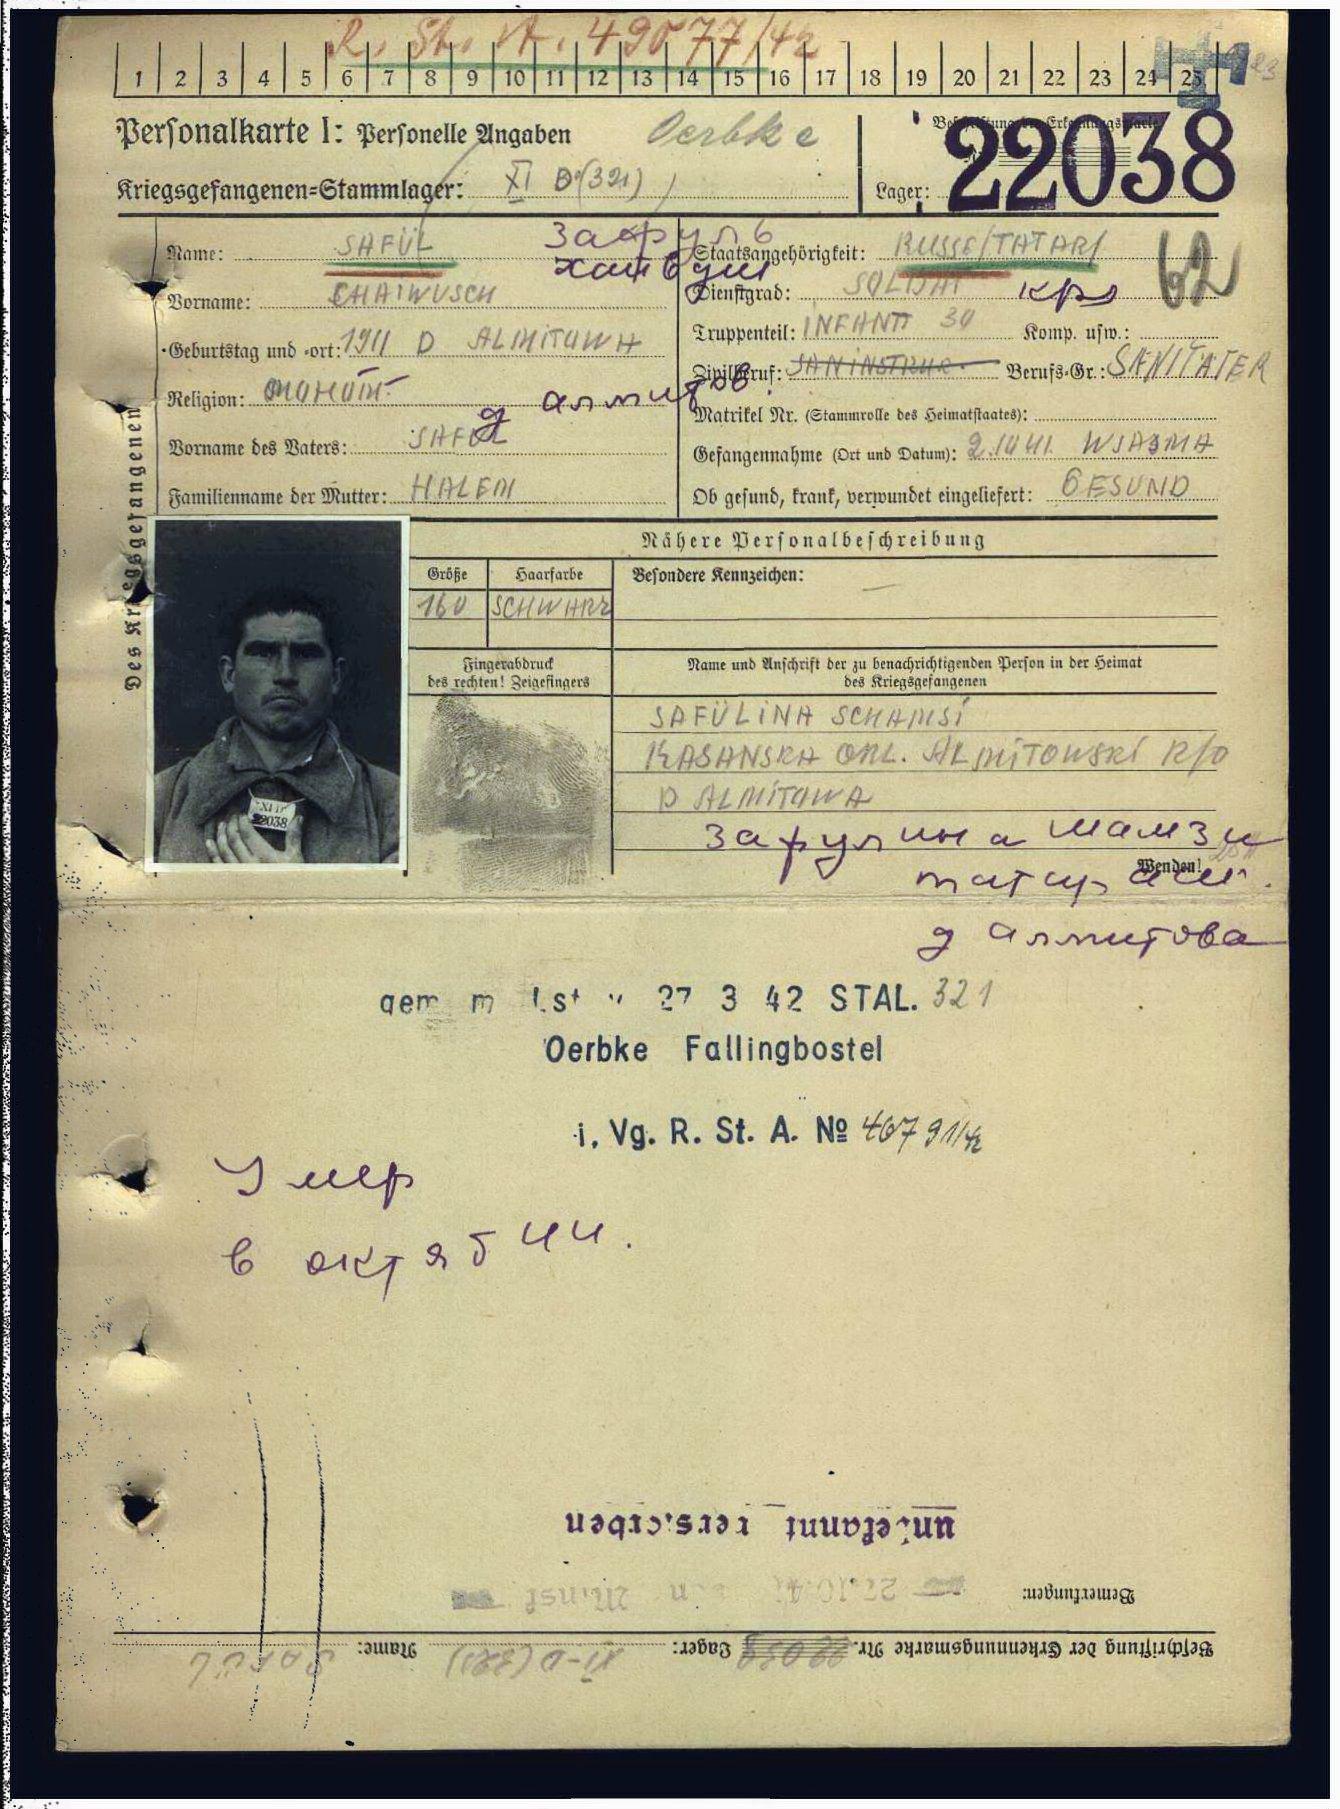 R. St. A. 49077/42
1 2 3 4 5 6 7 8 9 10 11 12 13 14 15 16 17 18 19 20 21 22 23 24 25
Personalkarte I: Personelle Angaben Oerbke
Kriegsgefangenen=Stammlager: XI D (321)
Beschriftung der Erkennungsmarke
22038
Lager:
Des Kriegsgefangenen
Name: SAFÜL зафуль
Vorname: CHAIWUSCH
Geburtstag und =ort: 1911 D ALMITOWA
д алмитов
Religion: MOHAM.
Vorname des Vaters: SAFÜL
Familienname der Mutter: HALEM
Staatsangehörigkeit: RUSSE/TATAR/ 62
Dienstgrad: SOLDAT кр
Truppenteil: INFANT 30 Komp. usw.:
Zivilberuf: SANINSTRUK. Berufs=Gr.: SANITATER
Matrikel Nr. (Stammrolle des Heimatstaates):
Gefangennahme (Ort und Datum): 2.10 41. WJASMA
Ob gesund, krank, verwundet eingeliefert: GESUND
Nähere Personalbeschreibung
Größe Haarfarbe Besondere Kennzeichen: —
160 SCHWARZ
XI D
22038
Fingerabdruck
des rechten! Zeigefingers
Name und Anschrift der zu benachrichtigenden Person in der Heimat
des Kriegsgefangenen
SAFÜLINA SCHAMSI
KASANSKA OBL. ALMITOWSKI R/O
D ALMITOWA
зафулина шамзи
Wenden!
д алмитова
27 3 42 STAL. 321
Oerbke Fallingbostel
i. Vg. R. St. A. № 46791/42
Умер
в октябии.
unbekannt verstorben
Bemerkungen: 27.10.4
Beschriftung der Erkennungsmarke Nr. 22038 Lager: XI-D (321) Name: SAFÜL